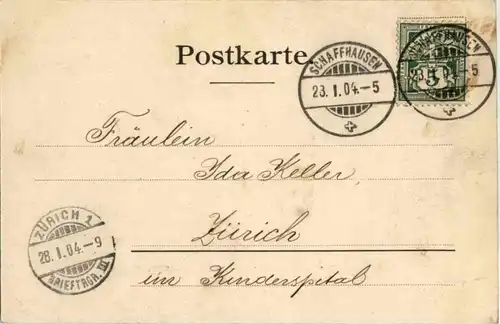 Postkarte.
SCHAFFHAUSEN
23.I.04.-5
SCHAFFHAUSEN
23.I.0 -5
5
Fräulein
Ida Keller,
Zürich
im Kinderspital
ZÜRICH 1
28.I.04.-9
BRIEFTRGR. III